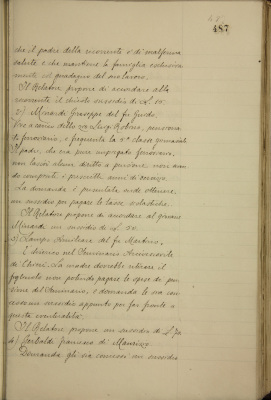 487
che il padre della ricorrente è di malferma
salute e che mantiene la famiglia esclusiva
mente col guadagno del suo lavoro.
Il Relatore propone di accordare alla
ricorrente il chiesto sussidio di L.
Minardi Giuseppe del fu Guido.
Vive a carico dello zio Luigi
ferroviario, e frequenta la 5ª classe ginnasiale
Il padre, che era pure impiegato ferroviario,
non lasciò alcun diritto a pensione non aven
do compiuto i prescritti anni di servizio.
La domanda è presentata onde ottenere
un sussidio per pagare le tasse scolastiche.
Il Relatore propone di accordare al giovane
Minardi un sussidio di L.
del fu Martino.
È chierico nel Seminario
di La madre dovrebbe ritirare il
figliuolo non potendo pagare le spese di pen
sione del Seminario, e domanda le sia con
cesso un sussidio appunto per far fronte a
questa
Il Relatore propone un sussidio di L.
Garibaldi Francesco di Maurizio
Domanda gli sia concesso un sussidio